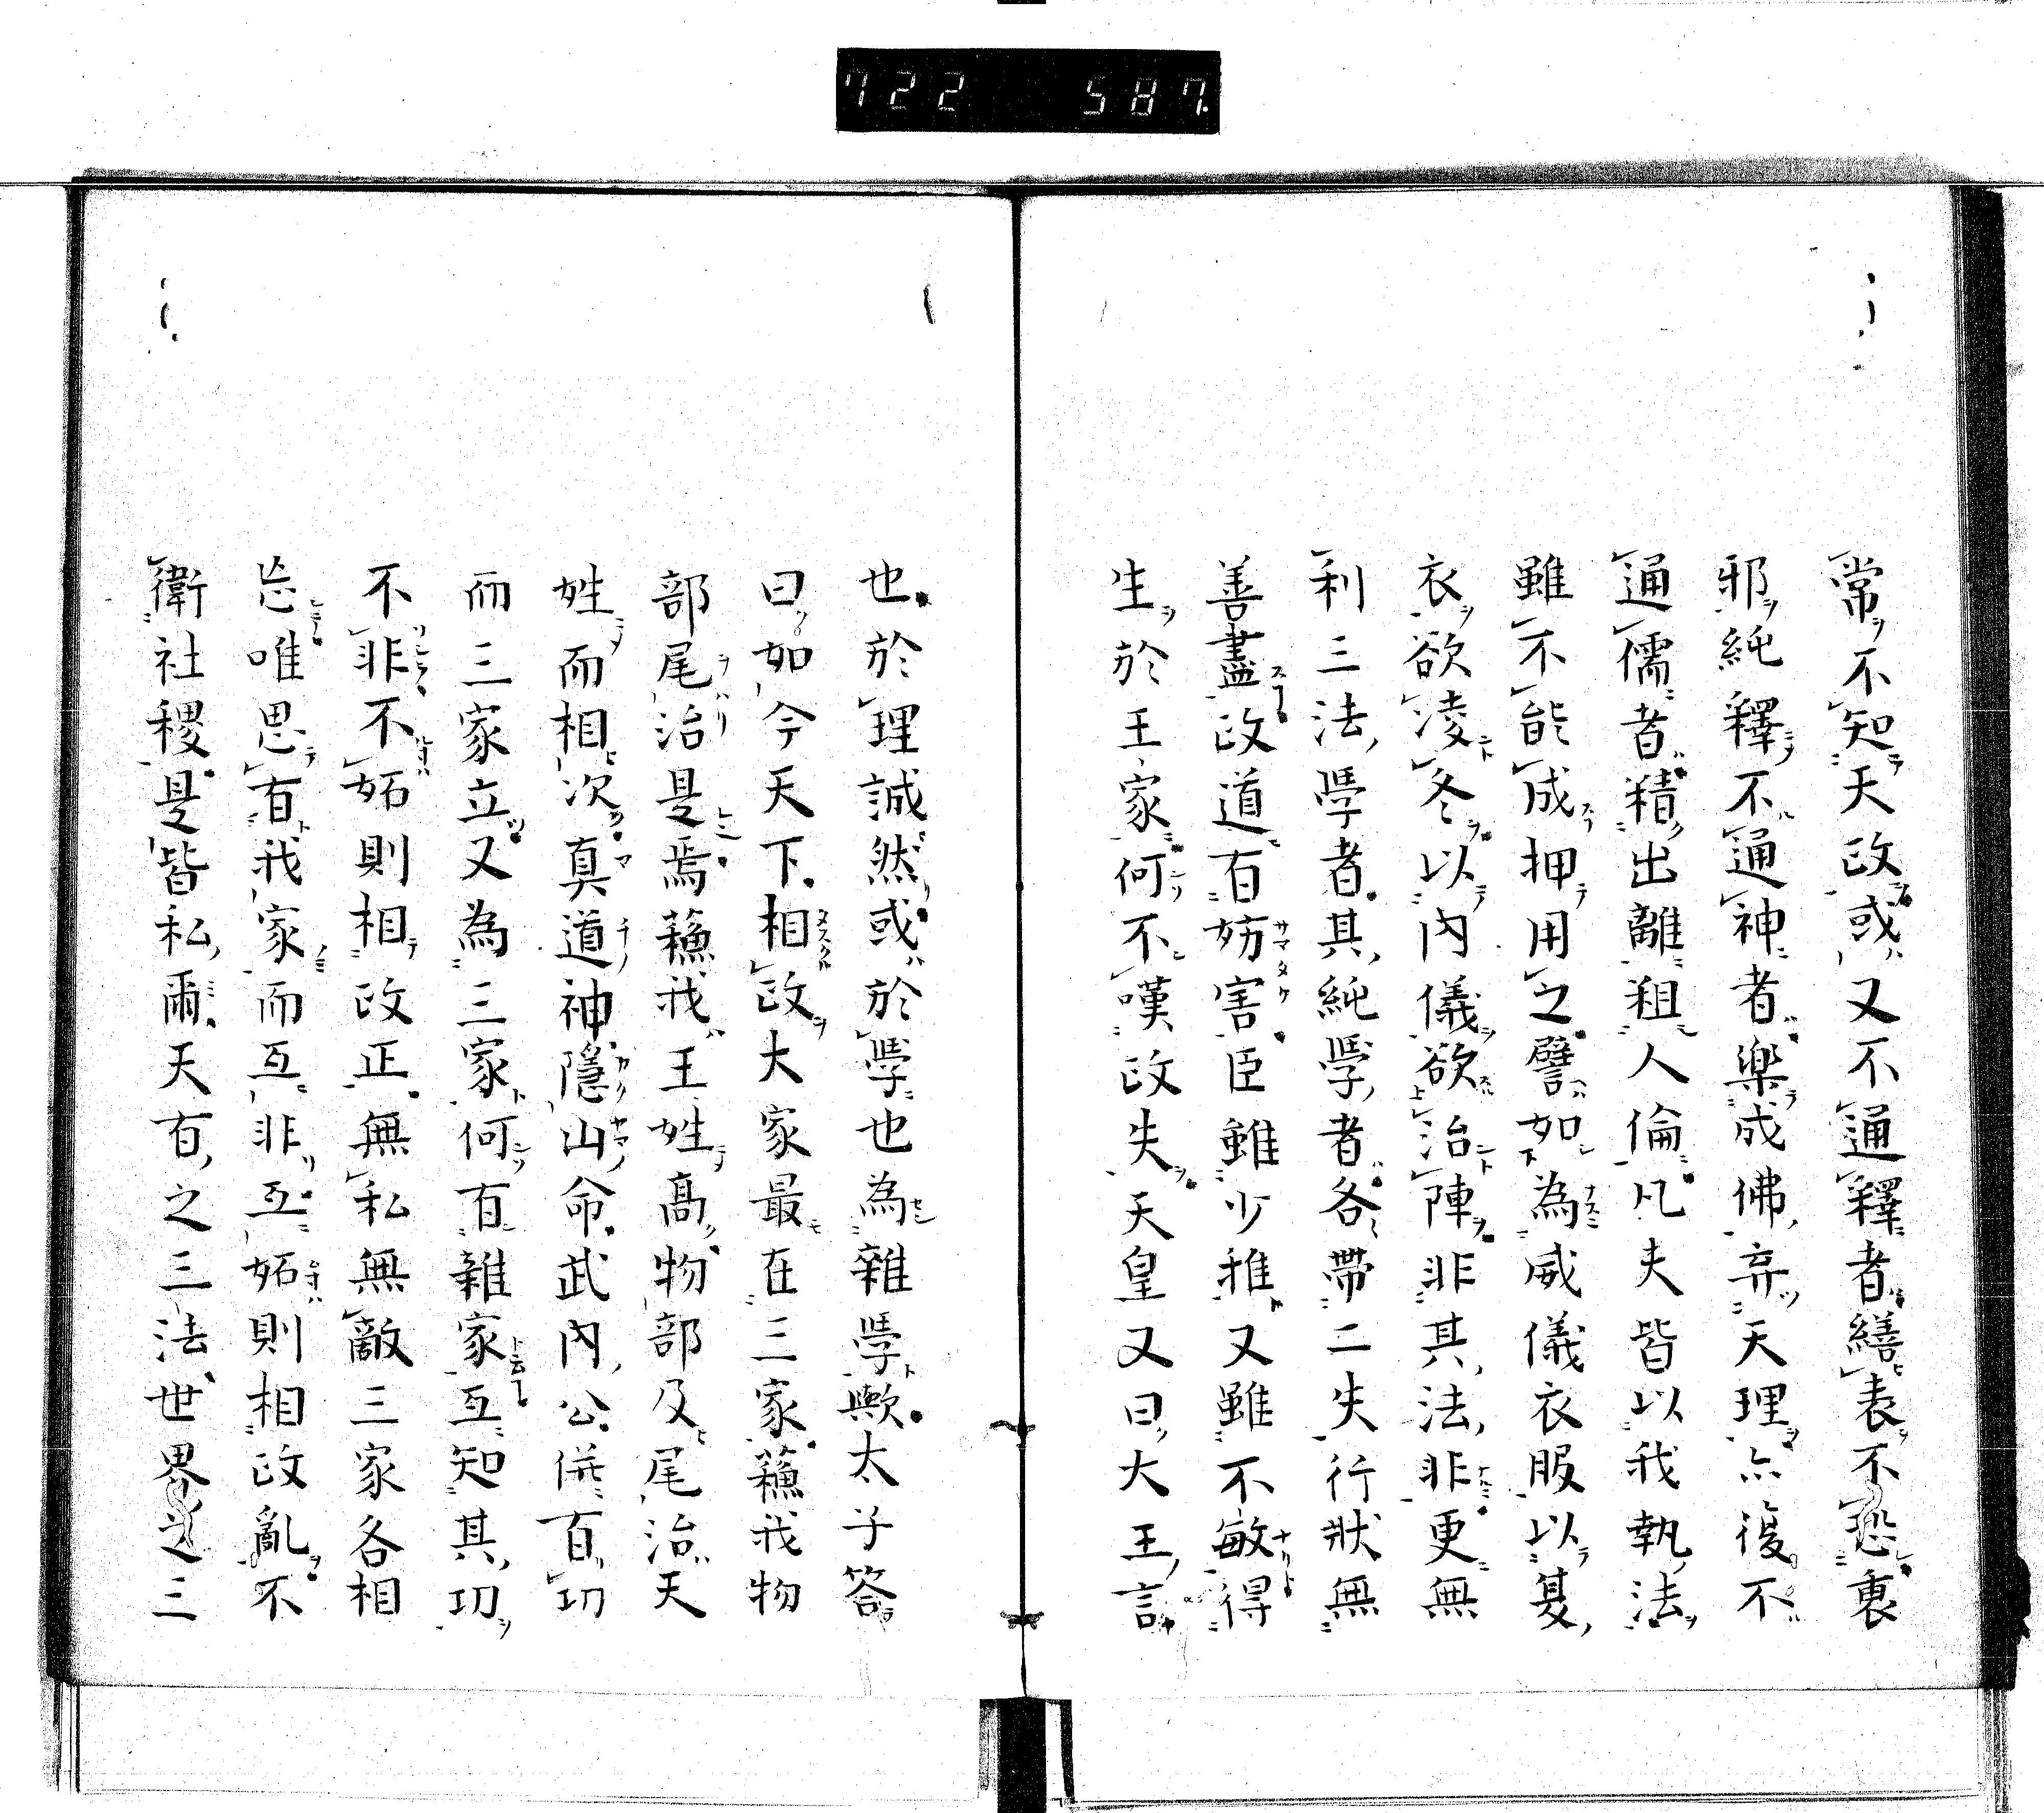 722 587.
常不知天政或又不通釋者繕表不恐裏
邪純釋不通神者樂成佛弃天理亦復不
通儒者精出離粗人倫凡夫皆以我執法
雖不能成押用之譬如為威儀衣服以夏
衣欲凌冬以內儀欲治陣非其法非更無
利三法學者其純學者各帶二失行狀無
善盡政道有妨害臣雖少雅又雖不敏得
生於王家何不嘆政失天皇又曰大王言
也於理誠然或於學也為雜學歟太子答
曰如今天下相政大家最在三家蘓我物
部尾治是焉蘓我王姓高物部及尾治天
姓而相次真道神隱山命武內公併有功
而三家立又為三家何有雜家互知其功
不非不妬則相政正無私無敵三家各相
忘唯思有我家而互非互妬則相政亂不
衛社稷是皆私爾天有之三法世界之三